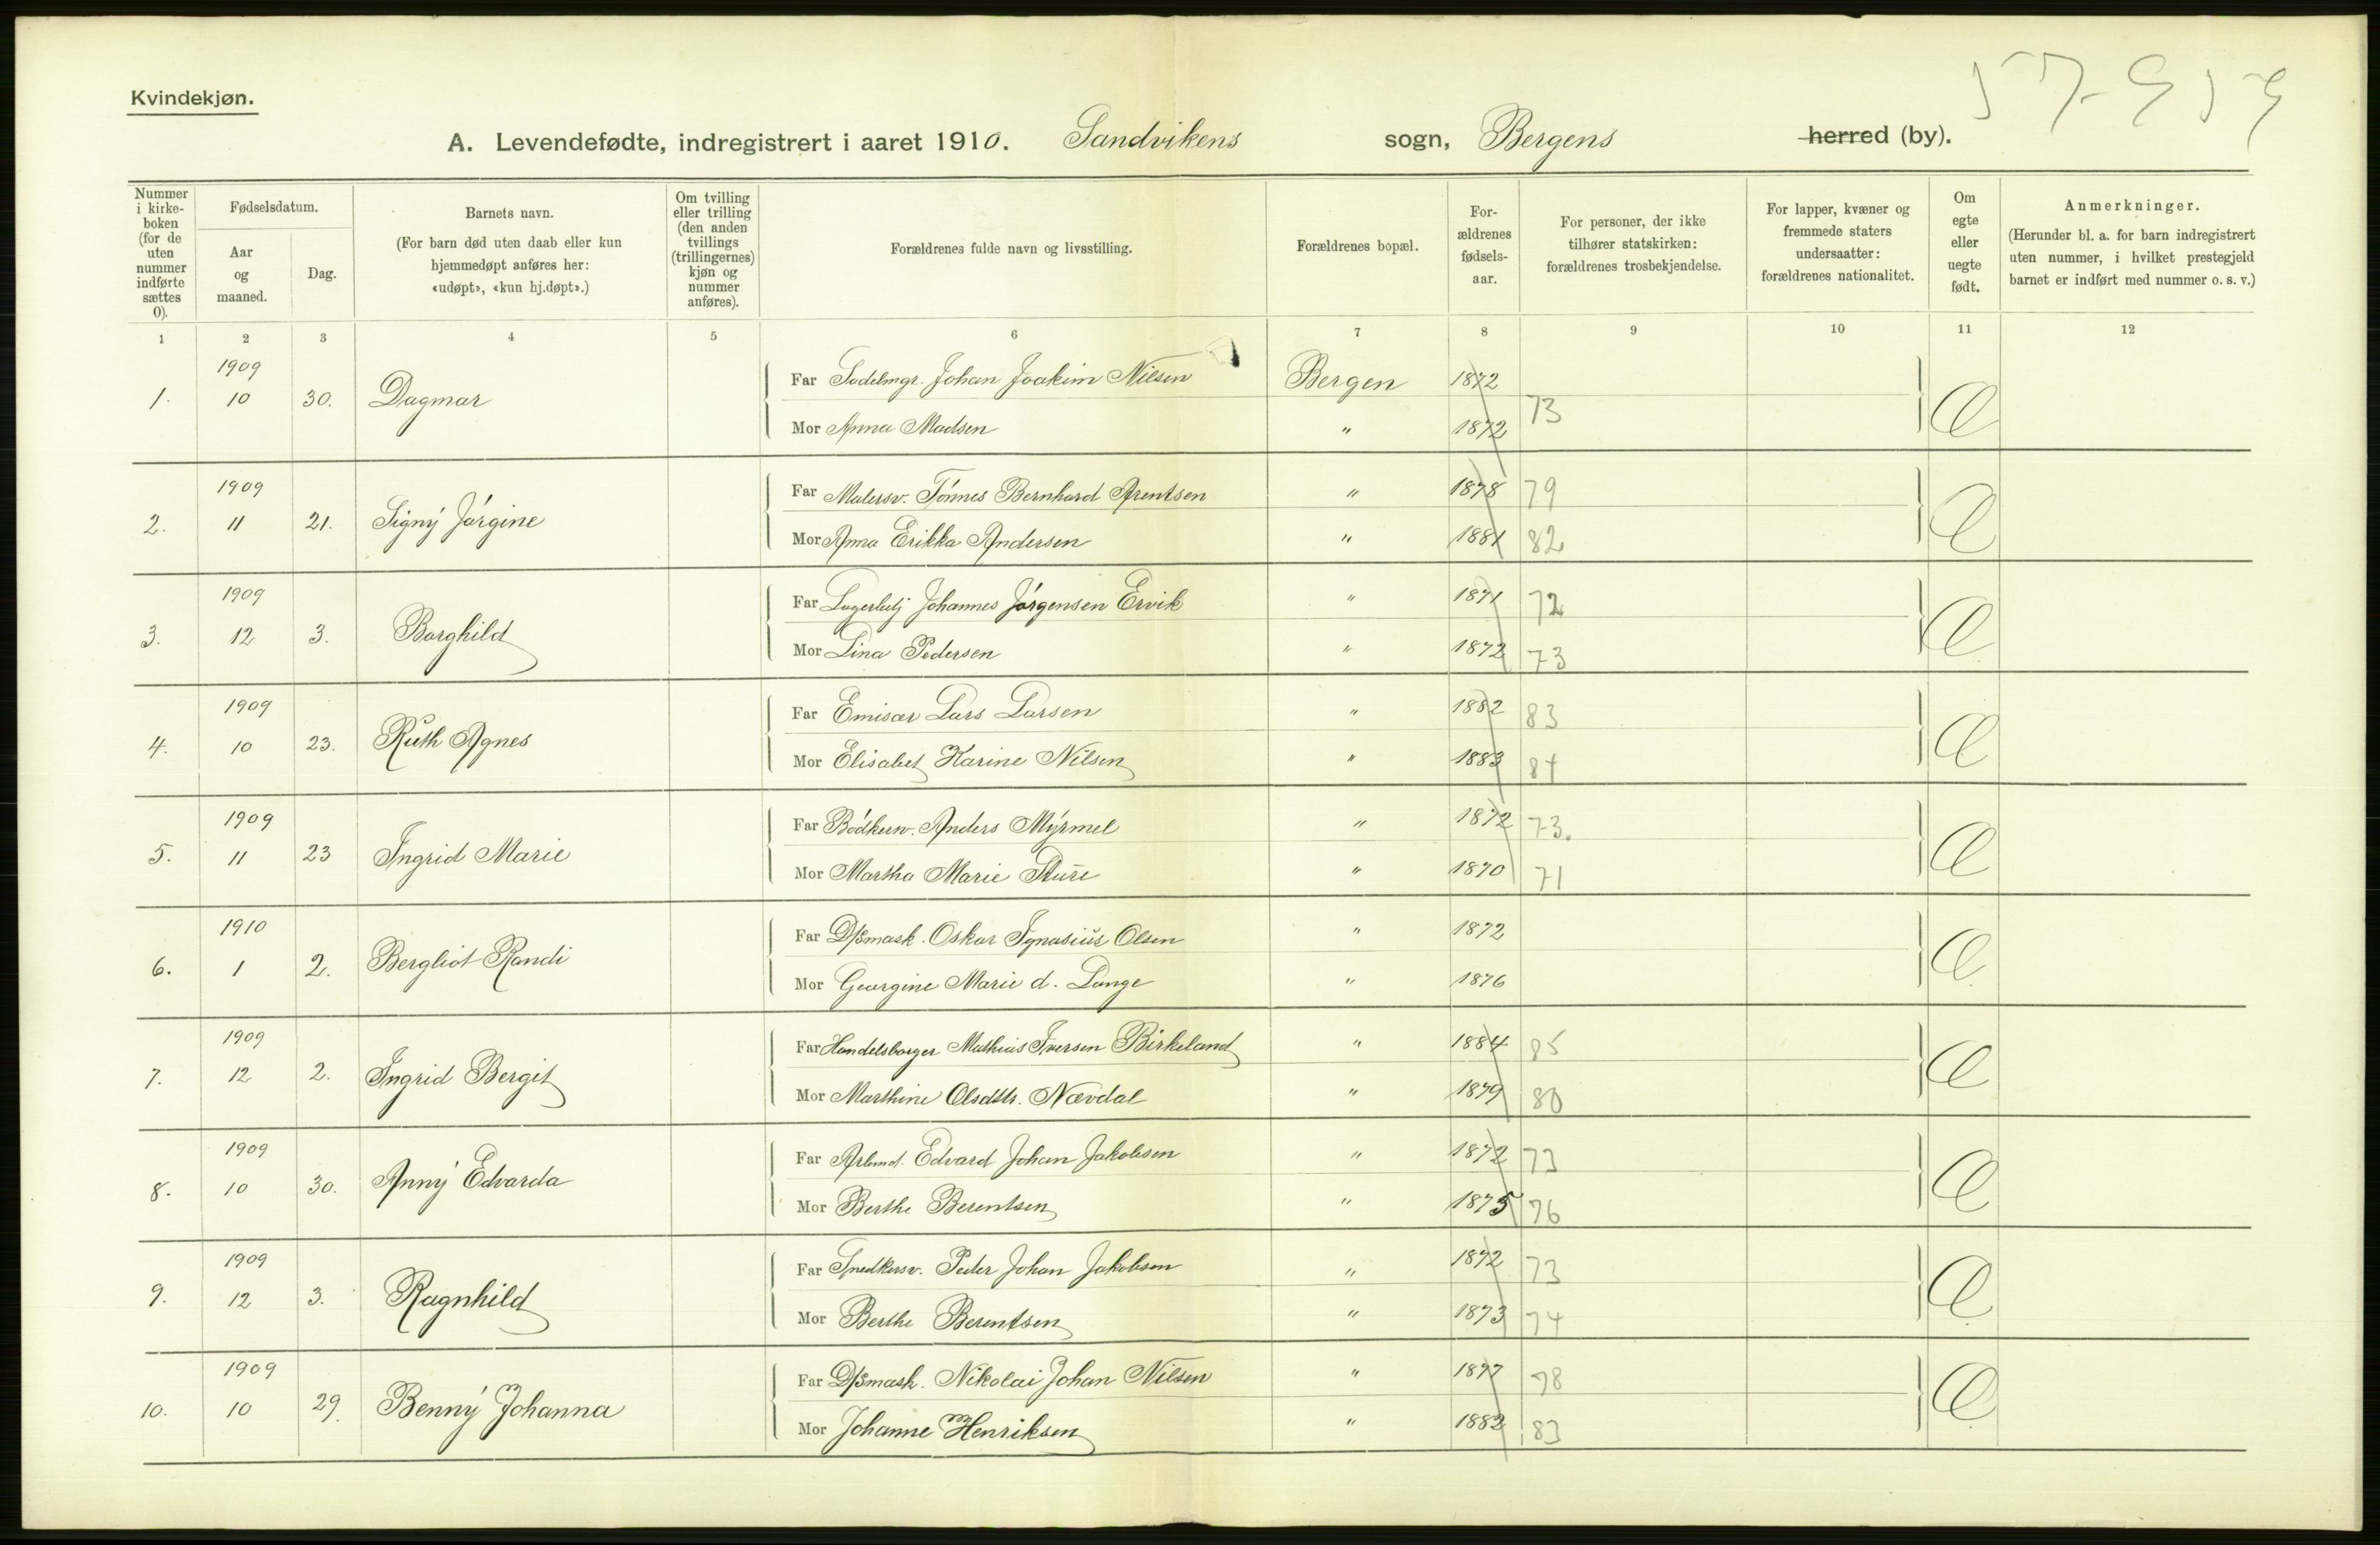 Kvindekjøn.
A. Levendefødte, indregistrert i aaret 1910. Sandvikens sogn, Bergens herred (by).
Nummer i kirke-boken (for de uten nummer indførte sættes 0).
Fødselsdatum.
Aar og maaned.
Dag.
Barnets navn.
(For barn død uten daab eller kun hjemmedøpt anføres her: «udøpt», «kun hj.døpt».)
Om tvilling eller trilling (den anden tvillings (trillingernes) kjøn og nummer anføres).
Forældrenes fulde navn og livsstilling.
Forældrenes bopæl.
For-ældrenes fødsels-aar.
For personer, der ikke tilhører statskirken: forældrenes trosbekjendelse.
For lapper, kvæner og fremmede staters undersaatter: forældrenes nationalitet.
Om egte eller uegte født.
Anmerkninger.
(Herunder bl. a. for barn indregistrert uten nummer, i hvilket prestegjeld barnet er indført med nummer o. s. v.)
1 2 3 4 5 6 7 8 9 10 11 12
1909
Far Johan Joakim Nilsen Bergen 1872
1. 10 30. Dagmar
Mor Anna Madsen " 1872 73
1909
Far Malersv. Tönnes Bernhard Arentsen " 1878 79
2. 11 21. Signy Jørgine
Mor Anna Erikka Andersen " 1881 82
1909
Far Johannes Jørgensen Ervik " 1871 72
3. 12 3. Borghild
Mor Lina Pedersen " 1872 73
1909
Far Emisær Lars Larsen " 1882 83
4. 10 23. Ruth Agnes
Mor Elisabet Karine Nilsen " 1883 84
1909
Far Bödkersv. Anders Myrmel " 1872 73.
5. 11 23 Ingrid Marie
Mor Martha Marie Sture " 1870 71
1910
Far D/Smask. Oskar Ignasius Olsen " 1872
6. 1 2. Bergliot Randi
Mor Georgine Marie d. Lange " 1876
1909
Far Handelsborger Mathias Iversen Birkeland " 1884 85
7. 12 2. Ingrid Bergit
Mor Marthine Olsdttr. Nævdal " 1879 80
1909
Far Arbmd. Edvard Johan Jakobsen " 1872 73
8. 10 30. Anny Edvarda
Mor Berthe Berentsen " 1875 76
1909
Far Snedkersv. Peder Johan Jakobsen " 1872 73
9. 12 3. Ragnhild
Mor Berthe Berentsen " 1873 74
1909
Far D/Smask. Nikolai Johan Nilsen " 1877 78
10. 10 29. Benny Johanna
Mor Johanne Henriksen " 1882 83